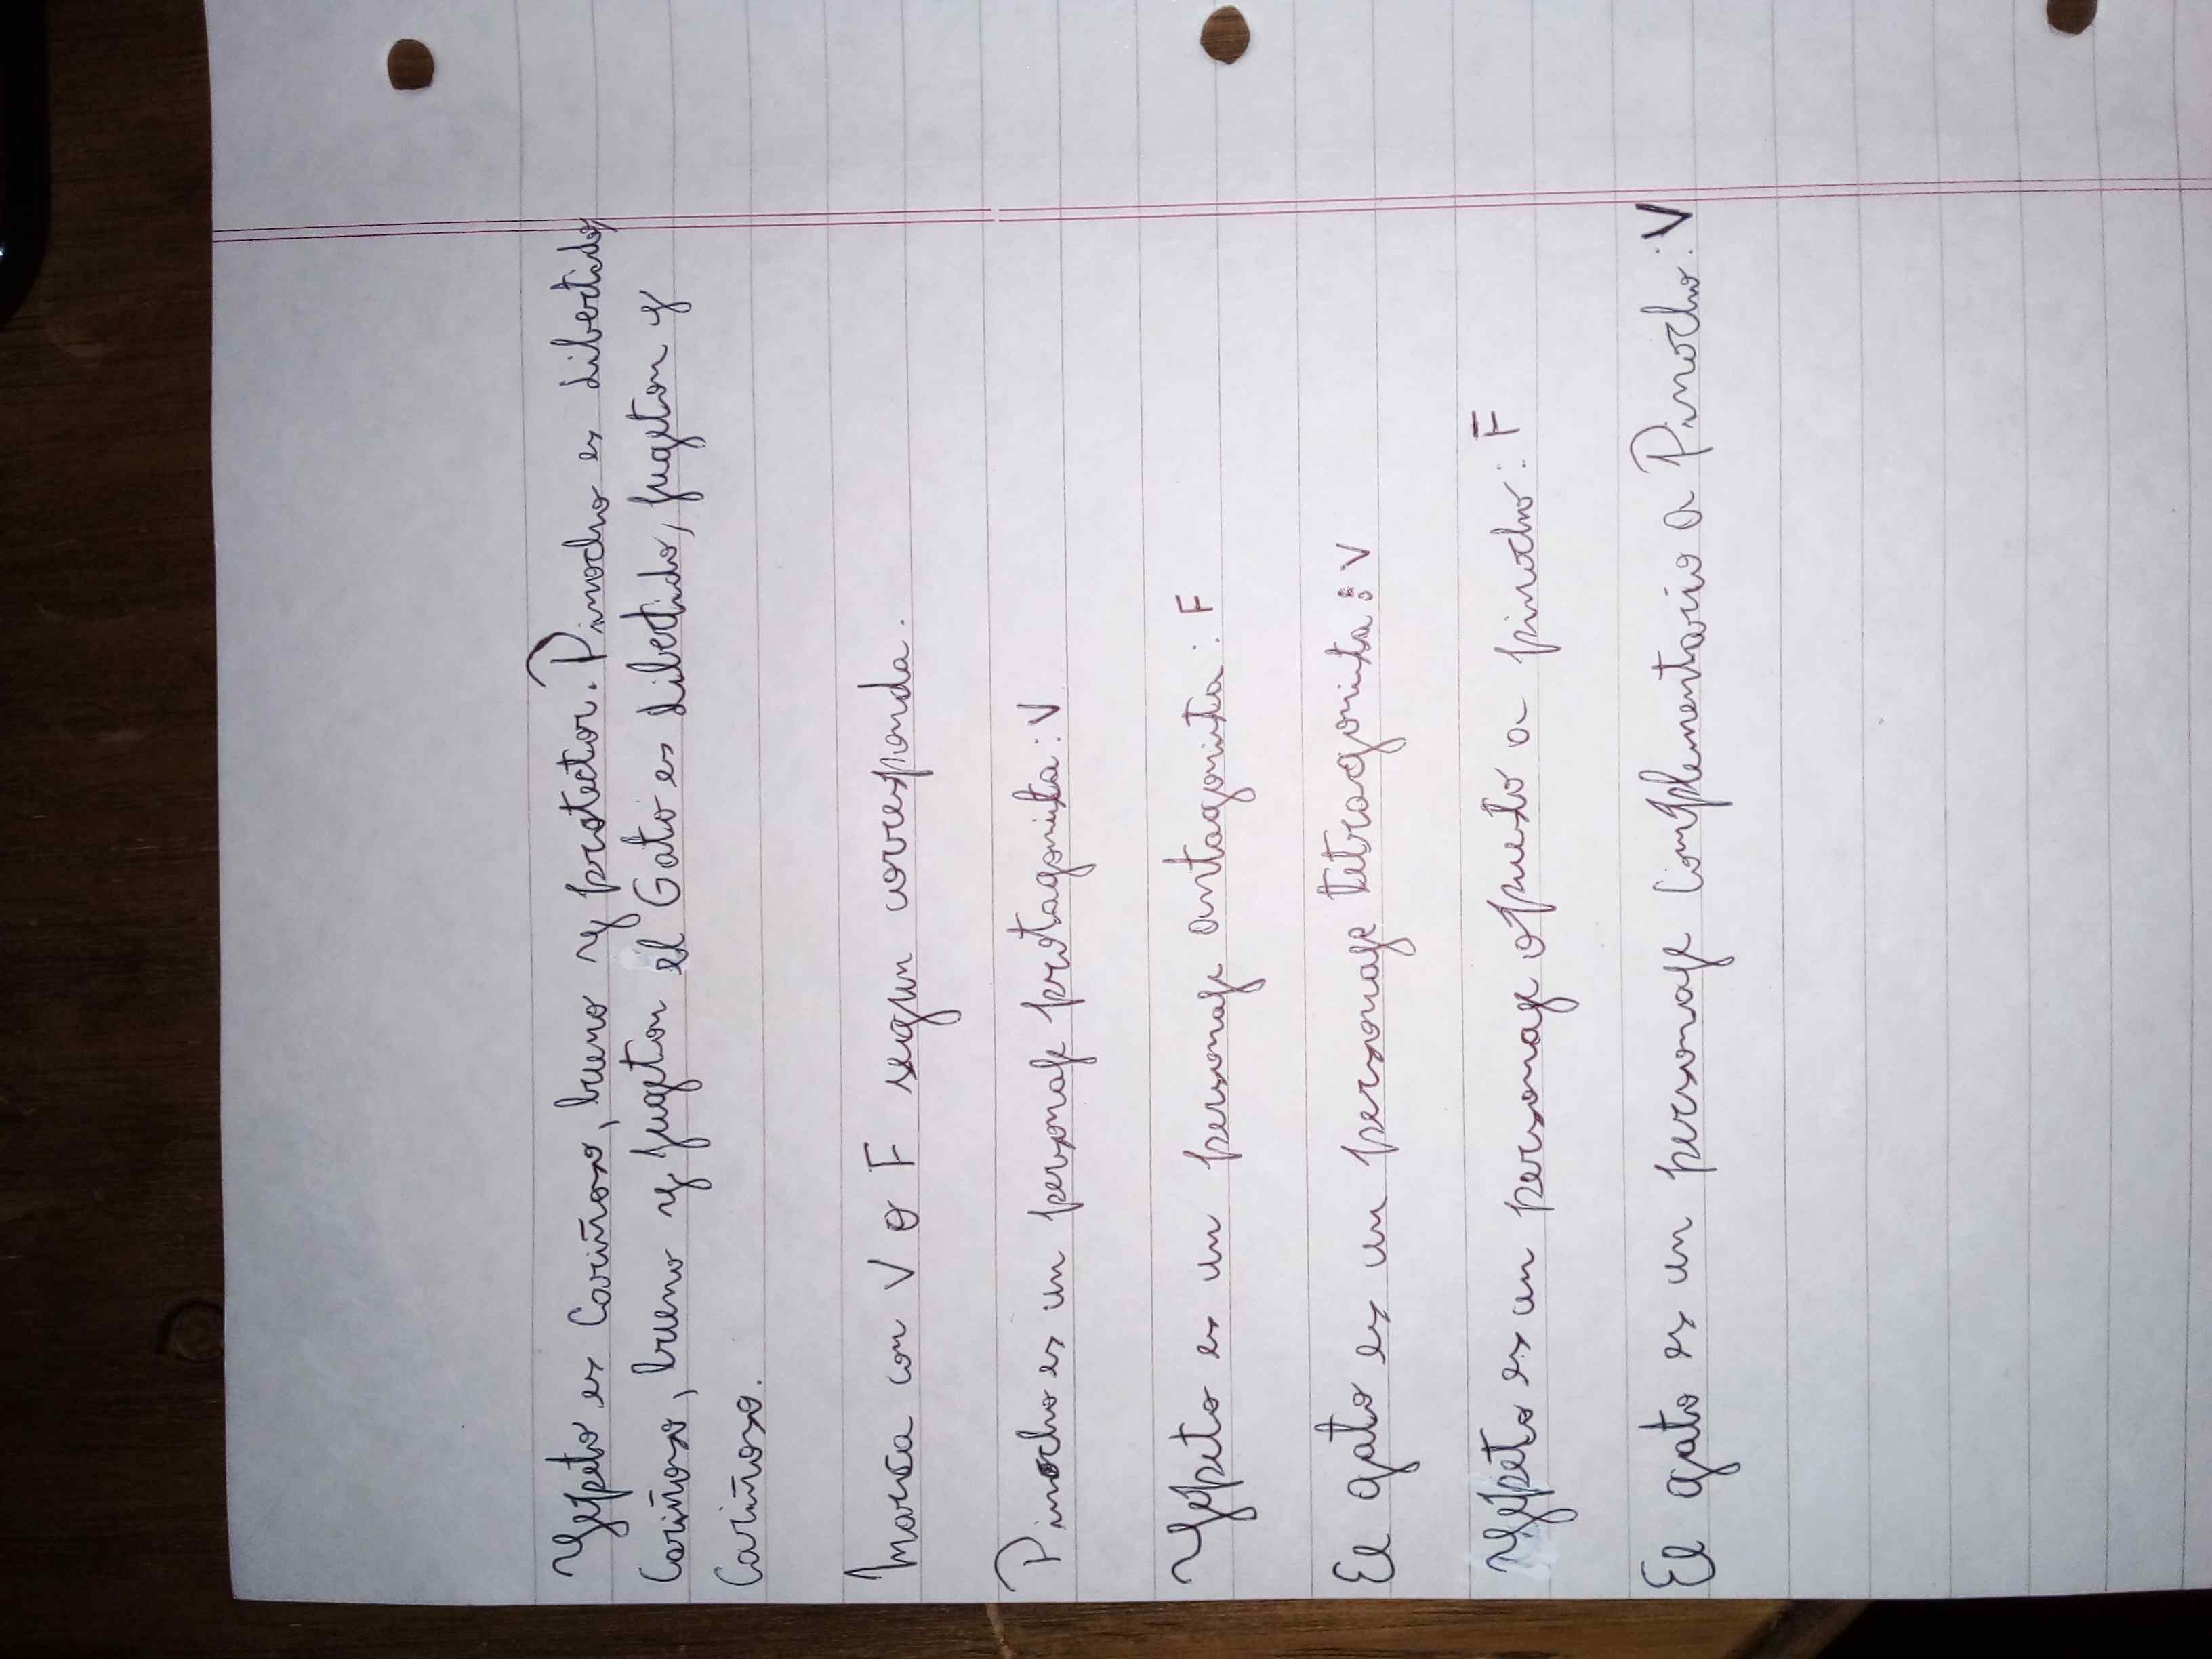 Yepeto es Cariñoso, bueno y protector. Pinocho es dibertido,
Cariñoso, bueno y jugeton el Gato es dibertido, jugeton y
Cariñoso.
Marca con V o F segun corresponda.
Pinocho es un personaje protagonista: V
Yepeto es un personaje antagonista: F
El gato es un personage tetragonista: V
Yepeto es un personage opuesto a pinocho: F
El gato es un personage Complementario a Pinocho: V